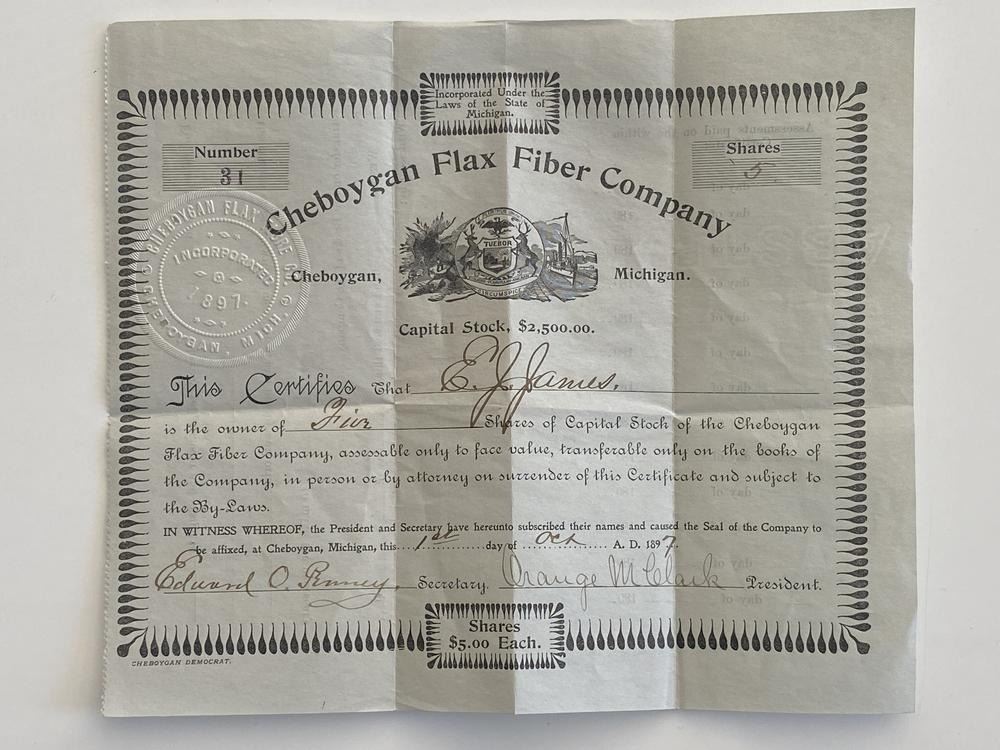 Incorporated Under the
Laws of the State of
Michigan.
Number
31
Shares
5
Cheboygan Flax Fiber Company
CHEBOYGAN FLAX FIBRE CO.
CHEBOYGAN, MICH.
INCORPORATED
1897.
TUEBOR
CIRCUMSPICE
Cheboygan, Michigan.
Capital Stock, $2,500.00.
This Certifies That E. J. James,
is the owner of Five Shares of Capital Stock of the Cheboygan
Flax Fiber Company, assessable only to face value, transferable only on the books of
the Company, in person or by attorney on surrender of this Certificate and subject to
the By-Laws.
IN WITNESS WHEREOF, the President and Secretary have hereunto subscribed their names and caused the Seal of the Company to
be affixed, at Cheboygan, Michigan, this 1st day of Oct A. D. 1897.
Edward O. Penney, Secretary. Orange M Clark President.
Shares
$5.00 Each.
CHEBOYGAN DEMOCRAT.